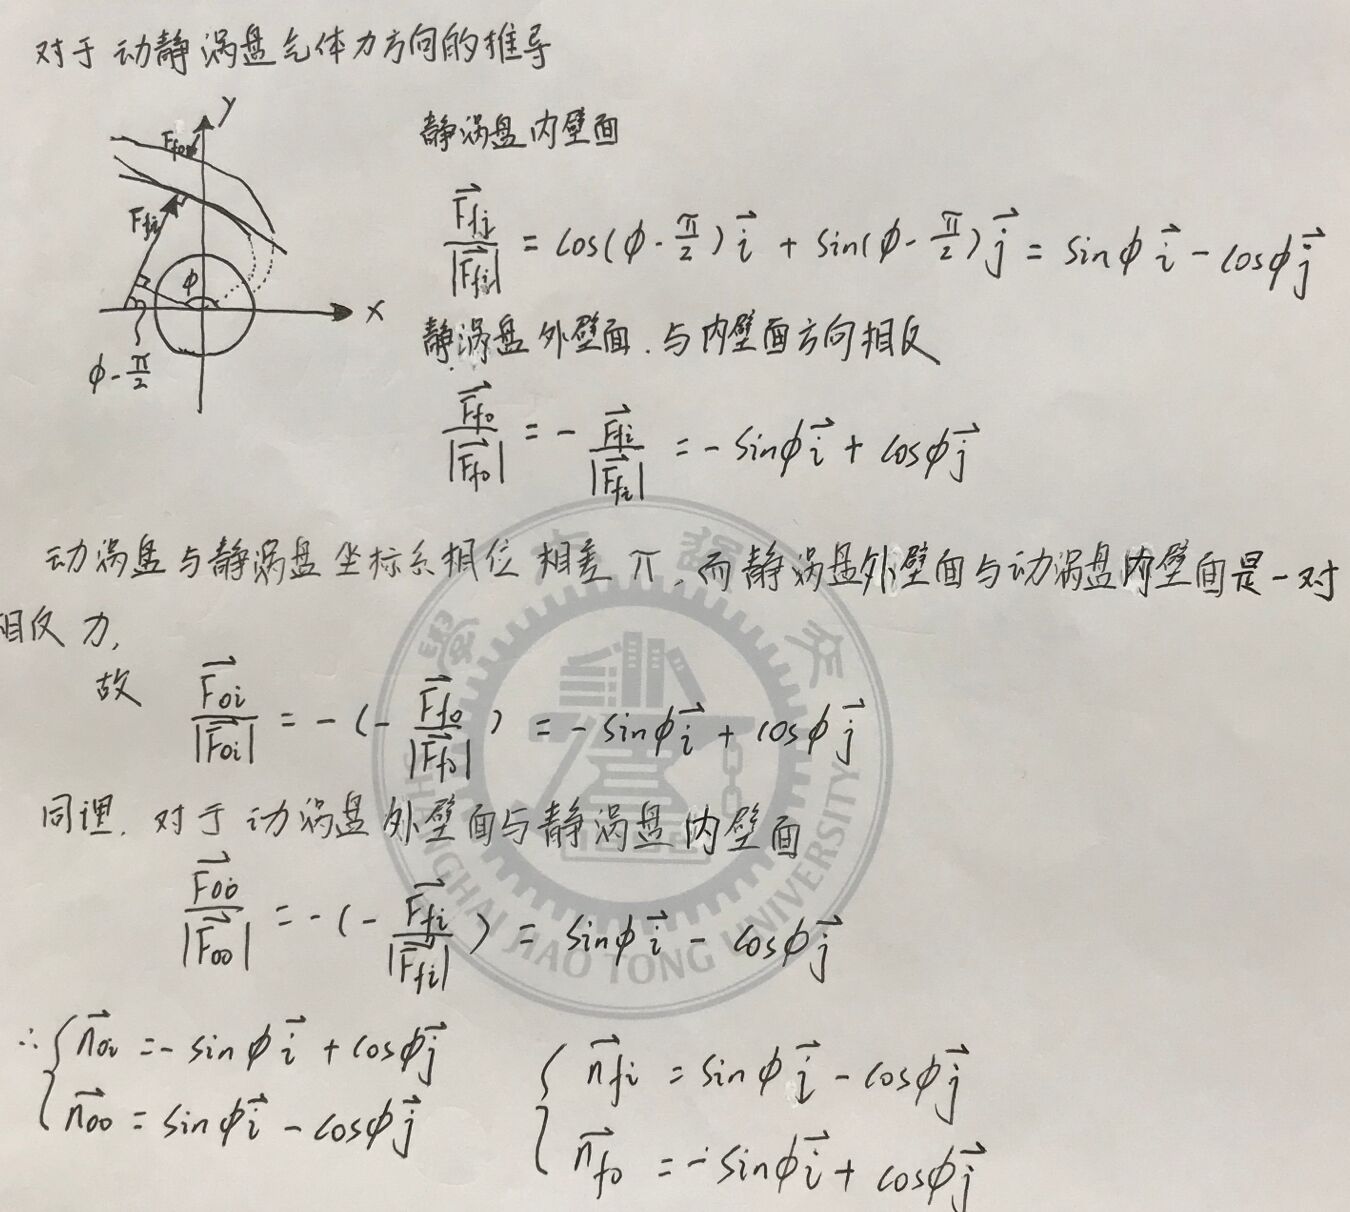 对于动静涡盘气体力方向的推导
y
F_{fo}
F_{fi}
φ
x
φ - π/2
静涡盘内壁面
\frac{\vec{F_{fi}}}{|\vec{F_{fi}}|} = cos(φ - π/2) \vec{i} + sin(φ - π/2) \vec{j} = sinφ \vec{i} - cosφ \vec{j}
静涡盘外壁面.与内壁面方向相反
\frac{\vec{F_{fo}}}{|\vec{F_{fo}}|} = - \frac{\vec{F_{fi}}}{|\vec{F_{fi}}|} = - sinφ \vec{i} + cosφ \vec{j}
动涡盘与静涡盘坐标系相位相差π,而静涡盘外壁面与动涡盘内壁面是一对
相反力,
故 \frac{\vec{F_{oi}}}{|\vec{F_{oi}}|} = - (- \frac{\vec{F_{fo}}}{|\vec{F_{fo}}|}) = - sinφ \vec{i} + cosφ \vec{j}
同理.对于动涡盘外壁面与静涡盘内壁面
\frac{\vec{F_{oo}}}{|\vec{F_{oo}}|} = - (- \frac{\vec{F_{fi}}}{|\vec{F_{fi}}|}) = sinφ \vec{i} - cosφ \vec{j}
∴ { \vec{n_{oi}} = - sinφ \vec{i} + cosφ \vec{j}
\vec{n_{oo}} = sinφ \vec{i} - cosφ \vec{j}
{ \vec{n_{fi}} = sinφ \vec{i} - cosφ \vec{j}
\vec{n_{fo}} = - sinφ \vec{i} + cosφ \vec{j}
SHANGHAI JIAO TONG UNIVERSITY